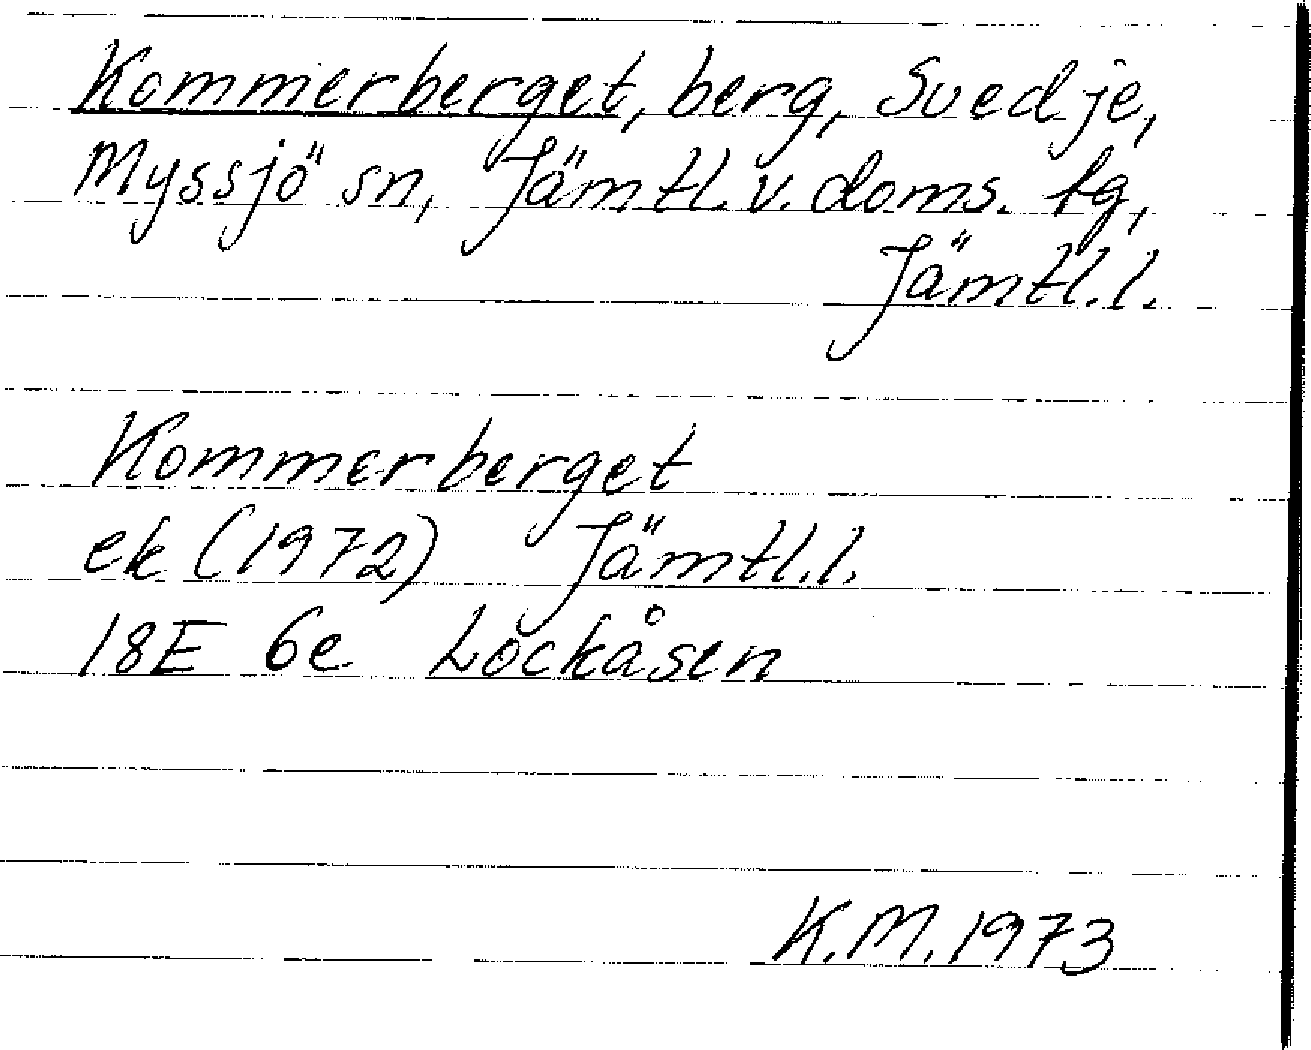 Kommerberget, berg, Svedje,
Myssjö sn, Jämtl. v. doms. tg,
Jämtl. l.
Kommerberget
ek (1972) Jämtl. l.
18E 6e Lockåsen
K.M. 1973